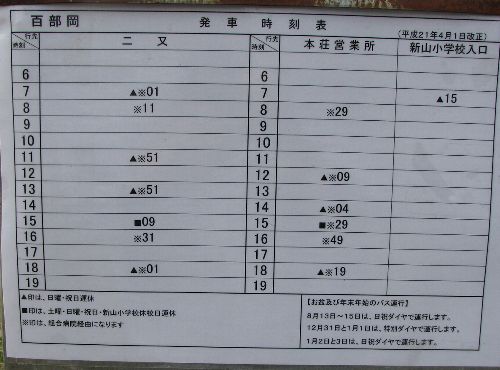 百部岡 発車時刻表
(平成21年4月1日改正)
行先 時刻 二又 行先 時刻 本荘営業所 新山小学校入口
6 6
7 ▲※01 7 ▲15
8 ※11 8 ※29
9 9
10 10
11 ▲※51 11
12 12 ▲※09
13 ▲※51 13
14 14 ▲※04
15 ■09 15 ■※29
16 ※31 16 ※49
17 17
18 ▲※01 18 ▲※19
19 19
▲印は、日曜・祝日運休
■印は、土曜・日曜・祝日・新山小学校休校日運休
※印は、組合病院経由になります
【お盆及び年末年始のバス運行】
8月13日～15日は、日祝ダイヤで運行します。
12月31日と1月1日は、特別ダイヤで運行します。
1月2日と3日は、日祝ダイヤで運行します。